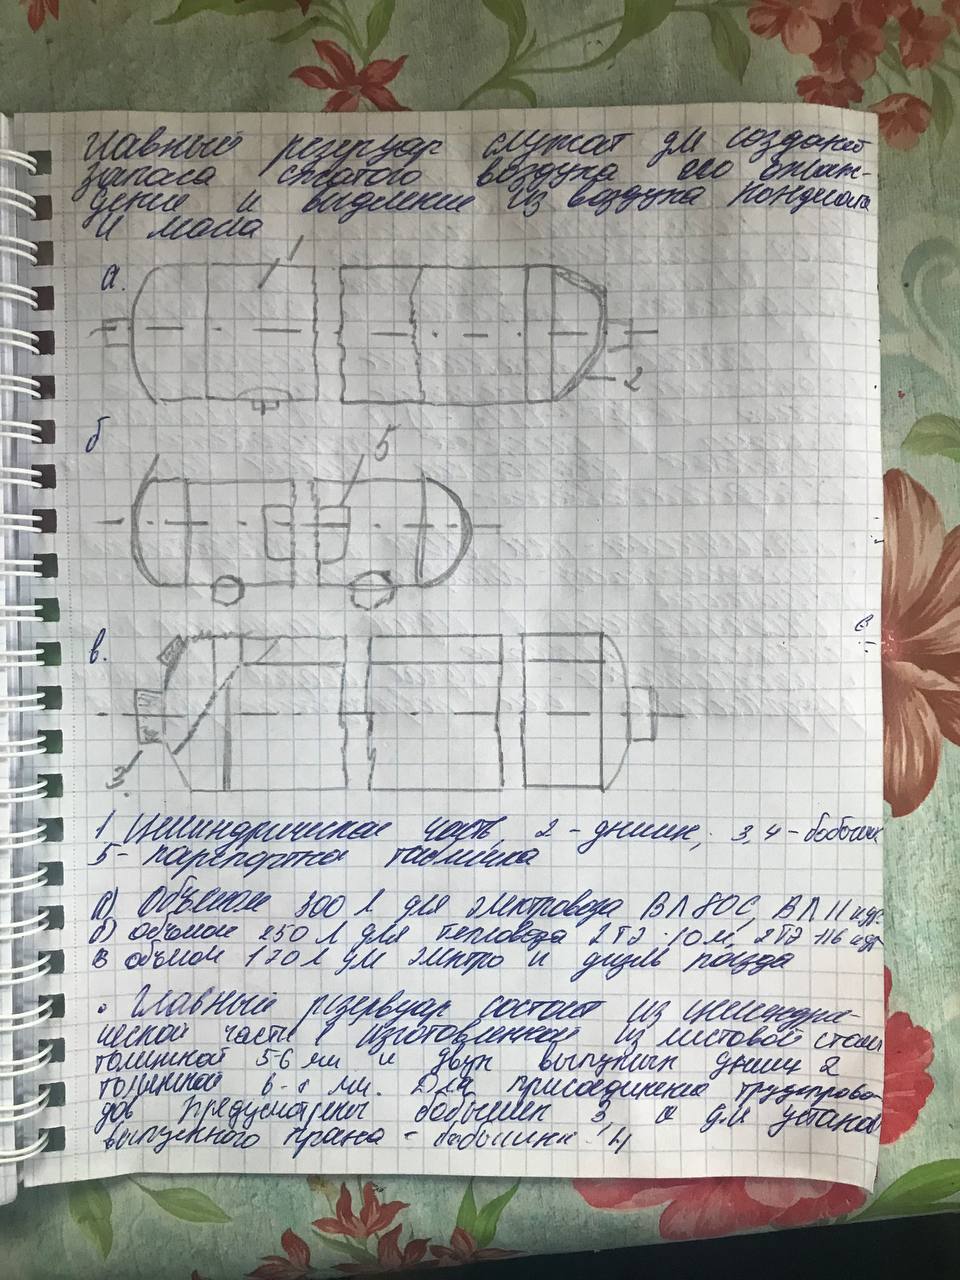 Главный резервуар служат для создания
запаса сжатого воздуха его охлаж-
дение и выделение из воздуха конденсата
и масла
а. 1
2
б 5
в.
3.
1 Цилиндрическая часть, 2 - днище; 3,4 - бобышки
5 - паспортна табличка
а) Объемом 300 л для электровоза ВЛ80С, ВЛ11 и др
б) объемом 250 л для тепловоза 2ТЭ-10м, 2ТЭ-116 и др
в объемом 170 л для электро и дизель поезда
• Главный резервуар состоит из цилиндри-
ческой части 1 изготовленной из листовой стали
толщиной 5-6 мм и двух выпуклых днищ 2
толщиной 6-8 мм. Для присоединение трубопрово-
дов предусмотрены бобышки 3, а для установ
выпускного крана - бобышки 4